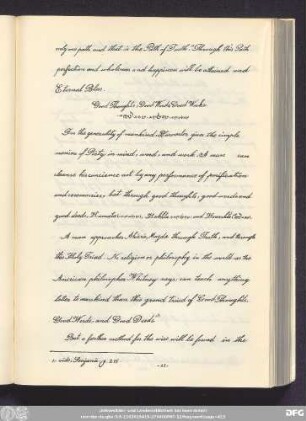 only one path and that is the Path of Truth. Through this Path
perfection and wholeness and happiness will be attained and
Eternal Bliss.
Good Thoughts, Good Words, Good Works
For the generality of mankind Zoroaster gave the simple
maxim of Piety in mind, word, and work. A man can
cleanse his conscience not by any performance of purification
and ceremonies; but through good thoughts, good words and
good deeds,
A man approaches Ahura Mazda through Truth, and through
the Holy Triad. No religion or philosophy in the world as the
American philosopher Whitney says can teach anything
later to mankind than this grand triad of Good Thoughts,
Good Words and Good Deeds
But a further method for the wise will be found in the